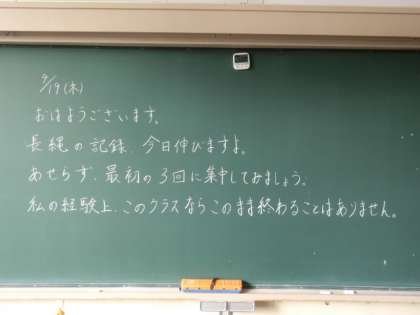 9/19(木)
おはようございます。
長縄の記録、今日伸びますよ。
あせらず、最初の3回に集中しておみましょう。
私の経験上、このクラスならこのまま終わることはありません。